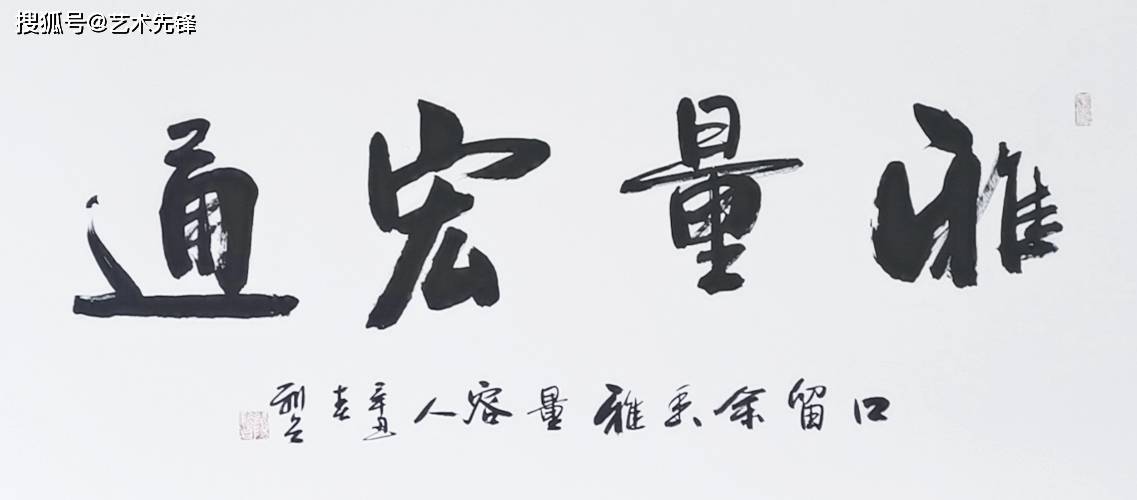 搜狐号@艺术先锋
雅量宏通
口留余香雅量容人 辛丑春